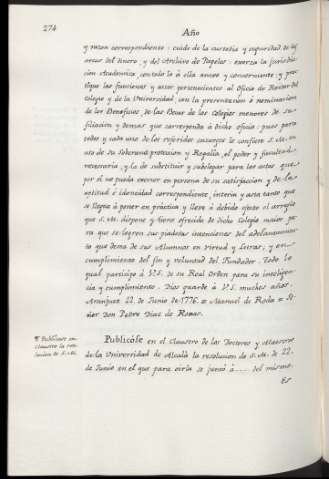 274
Año
y razon correspondiente: cuide de la custodia y seguridad de las
arcas del dinero, y del Archivo de Papeles: exerza la jurisdic-
cion Academica, con todo lo à ella anexo y concerniente; y prac-
tique las funciones y actos pertenecientes al Oficio de Rector del
Colegio y de la Universidad, con la presentacion ò nominacion
de los Beneficios de las Becas de los Colegios menores de su
filiacion y demas que corresponda à dicho oficio; pues para
todos y cada uno de los referidos encargos le confiere S. M. en
uso de su Soberana proteccion y Regalia, el poder y facultad
necesaria, y la de substituir y subdelegar para los actos que
por sì no pueda exercer en persona de su satisfaccion y de la
aptitud è idoneidad correspondiente, interin y hasta tanto que
se llegue à poner en práctica y lleve à debido efecto el arreglo
que S. M. dispone y tiene ofrecido de dicho Colegio maior pa-
ra que se logren sus piadosas intenciones del adelantamien-
to que desea de sus Alumnos en virtud y letras, y en
cumplimiento del fin y voluntad del Fundador. Todo lo
qual participo à V. S. de su Real Orden para su inteligen-
cia y cumplimiento. Dios guarde à V. S. muchos años.
Aranjuez 22. de Junio de 1776. = Manuel de Roda = Se-
ñor Don Pedro Diaz de Roxas.
¶ Publicase en
claustro la reso-
lucion de S. M.
Publicóse en el Claustro de los Doctores y Maestros
de la Universidad de Alcalà la resolucion de S. M. de 22.
de Junio en el que para oirla se juntó à ..... del mismo.
Es